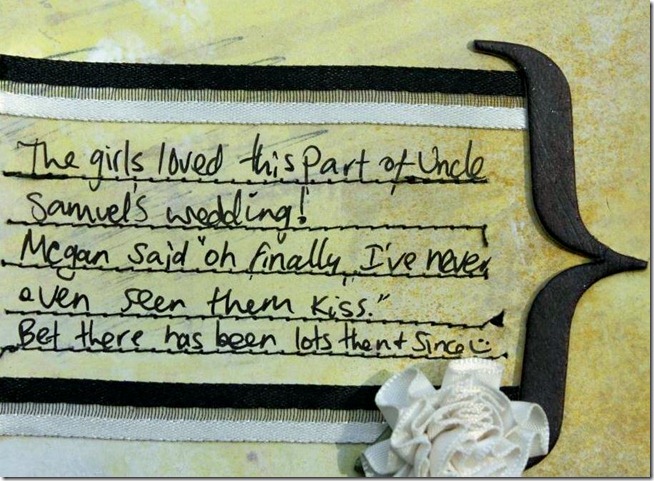 The girls loved this part of Uncle
Samuel's wedding!
Megan said "oh finally, I've never
even seen them kiss."
Bet there has been lots then & since :)